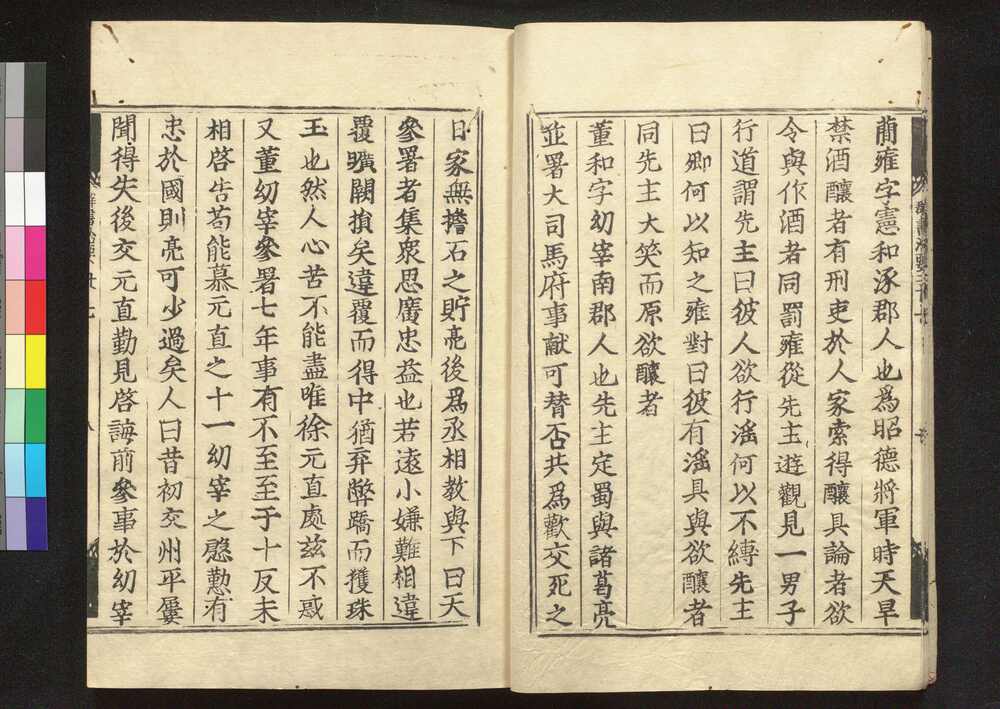 蕳雍字憲和涿郡人也爲昭德將軍時天旱
禁酒釀者有刑吏於人家索得釀具論者欲
令與作酒者同罰雍從先主遊觀見一男子
行道謂先主曰彼人欲行滛何以不縳先主
曰卿何以知之雍對曰彼有滛具與欲釀者
同先主大笑而原欲釀者
董和字幼宰南郡人也先主定蜀與諸葛亮
並署大司馬府事献可替否共爲歡交死之
日家無擔石之貯亮後爲丞相教與下曰夫
參署者集衆思廣忠益也若遠小嫌難相違
覆曠闕損矣違覆而得中猶弃弊蹻而獲珠
玉也然人心苦不能盡唯徐元直處兹不惑
又董幼宰參署七年事有不至至于十反未
相啓告苟能慕元直之十一幼宰之慇懃有
忠於國則亮可少過矣人曰昔初交州平屢
聞得失後交元直勤見啓誨前參事於幼宰